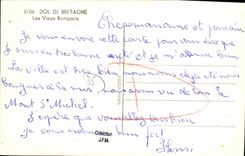 5106 DOL DE BRETAGNE
Les Vieux Remparts
Chère marraine et parrain
Je vous envoie cette carte pour vous dire que
Je suis en très bonne santé et je m'amuse bien
La ville est très bien nous avons déjà été nous
baigner à la mer nous avons vu de loin le
Mont St Michel.
J'espère que vous allez tous bien
Je vous embrasse bien fort
Henri
Collection
J.F.M.